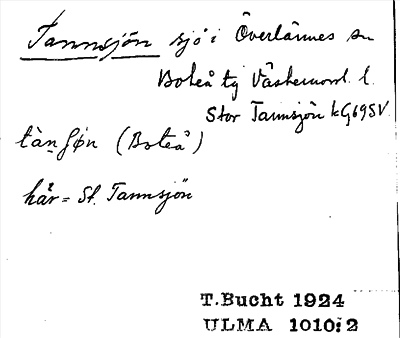 Tannsjön sjö i Överlännes sn
Boteå tg Västernorrl. l.
Stor Tannsjön kG69SV
(Boteå)
här = St. Tannsjön
T.Bucht 1924
ULMA 1010:2